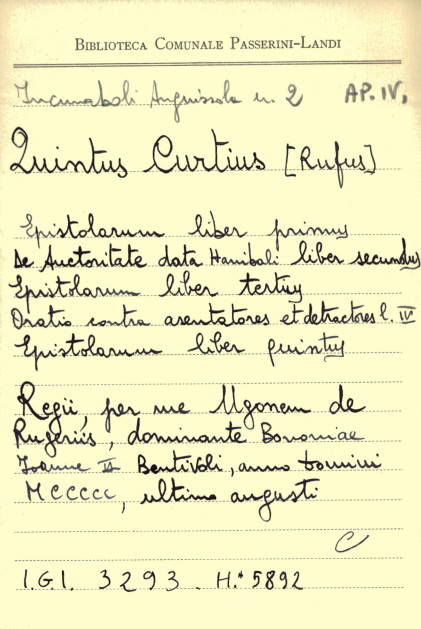 BIBLIOTECA COMUNALE PASSERINI-LANDI
Incunaboli Anguissola n. 2 AP. IV,
Quintus Curtius [Rufus]
Epistolarum liber primus
De Auctoritate data Hanibali liber secundus
Epistolarum liber tertius
Oratio contra asentatores et detractores l. IV
Epistolarum liber quintus
Regii, per me Ugonem de
Rugeriis, dominante Bononiae
Joanne II Bentivoli, anno domini
MCCCCC, ultimo augusti
C
I.G.I. 3293. H.* 5892